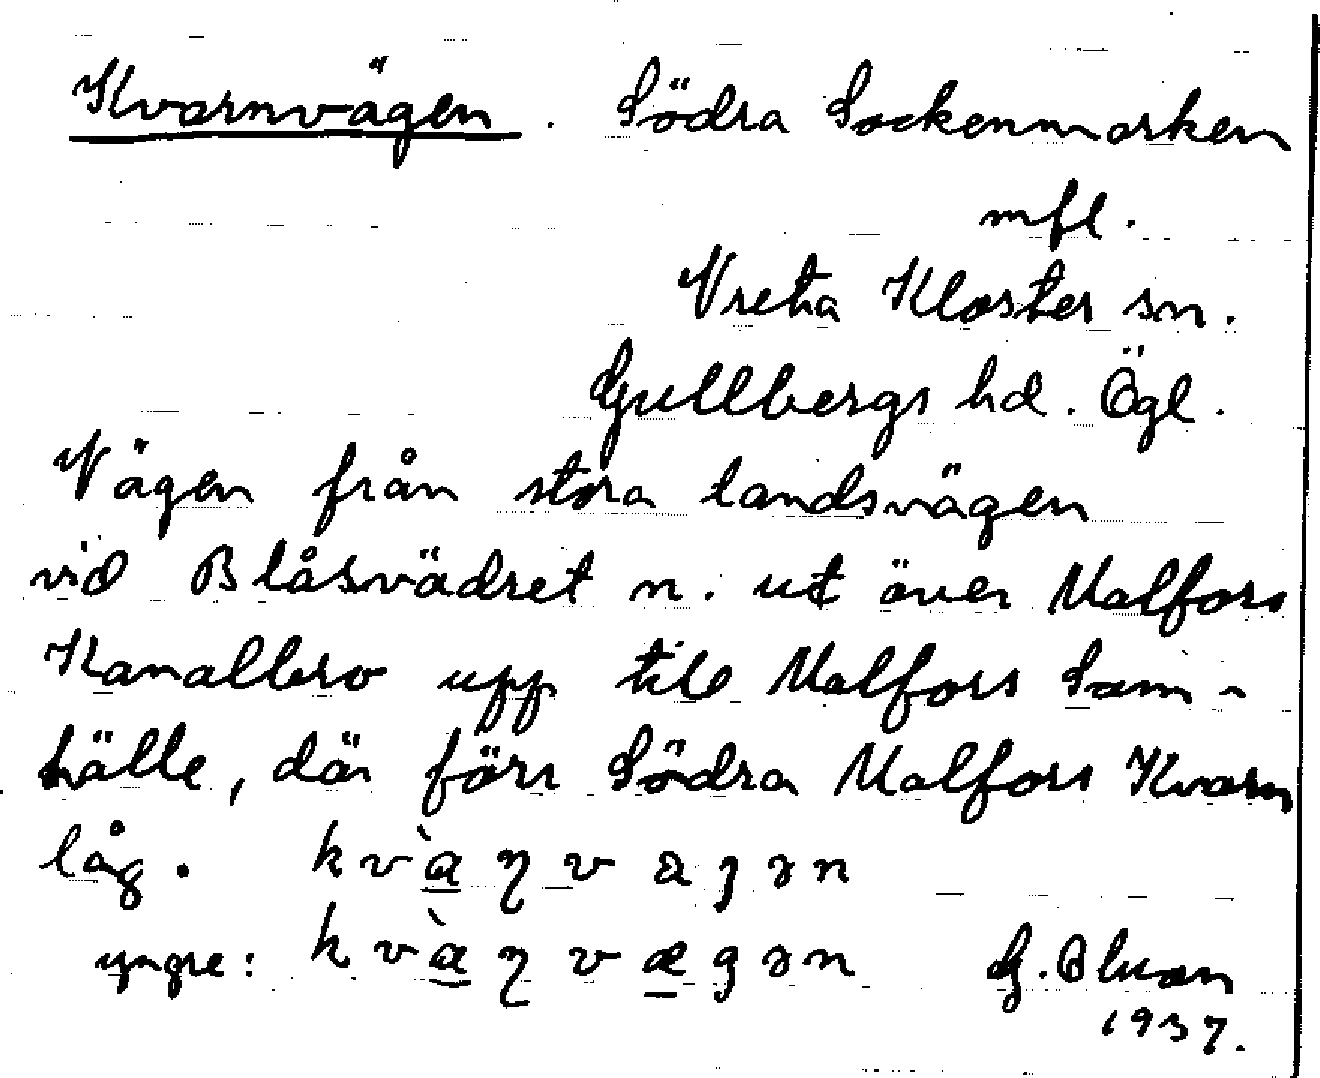 Kvarnvägen. Södra Sockenmarken
mfl.
Vreta Kloster sn.
Gullbergs hd. Ögl.
Vägen från stora landsvägen
vid Blåsvädret n. ut över Malfors
Kanalbro upp till Malfors Sam-
hälle, där förr Södra Malfors Kvarn
låg.
yngre:
1937.